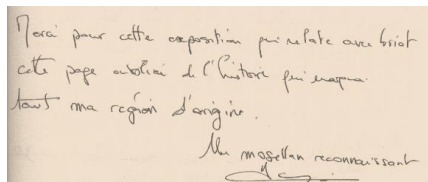 Merci pour cette exposition qui relate avec briot
cette page oubliée de l'histoire qui marqua
tant ma région d'origine.
Un mosellan reconnaissant